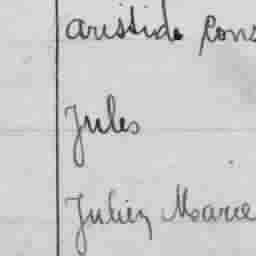 Aristide Cons
Jules
Julien Marie